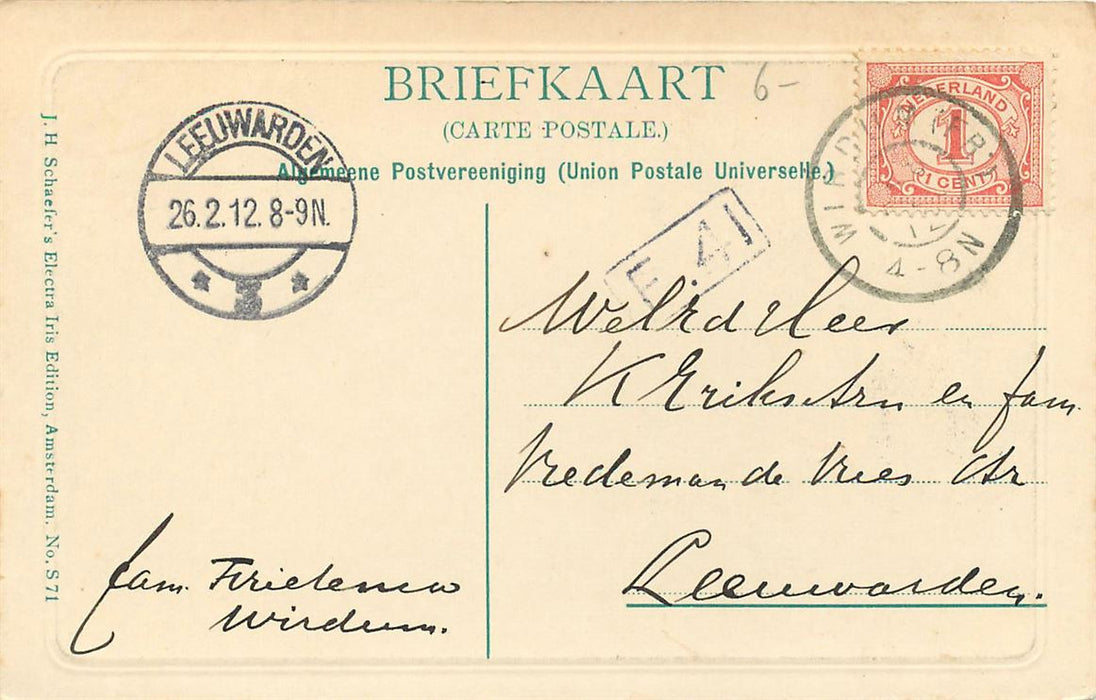 BRIEFKAART
(CARTE POSTALE.)
Algemeene Postvereeniging (Union Postale Universelle.)
6-
NEDERLAND
1
1 CENT
4-8N
LEEUWARDEN
26.2.12. 8-9N.
* 3 *
F 41
WelEd Heer
K Eriks Arn en fam.
Vredeman de Vries str
Leeuwarden.
fam. Frietema
Wirdum.
J. H. Schaefer's Electra Iris Edition, Amsterdam. No. S 71